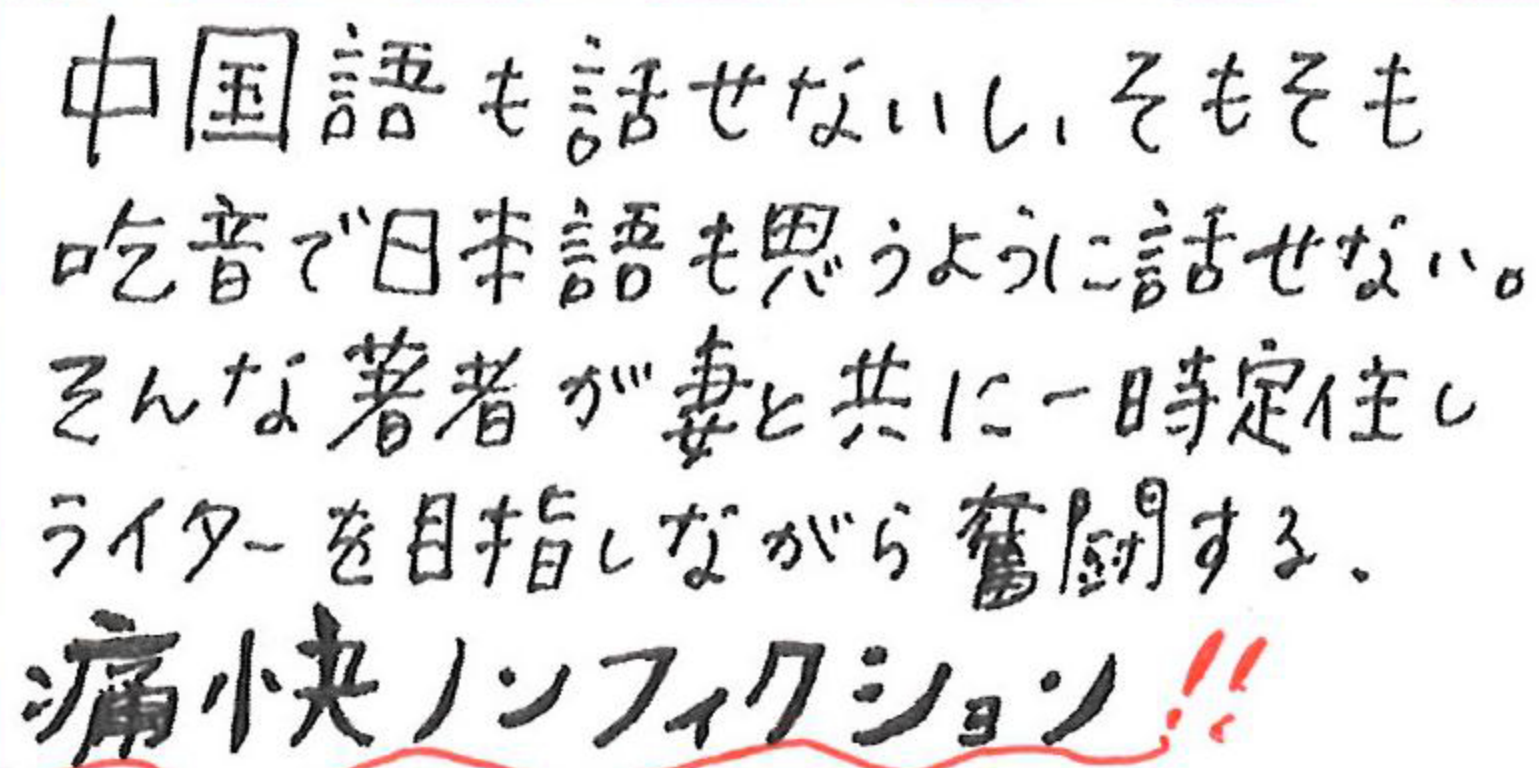 中国語も話せないし、そもそも
吃音で日本語も思うように話せない。
そんな著者が妻と共に一時定住し
ライターを目指しながら奮闘する、
痛快ノンフィクション!!